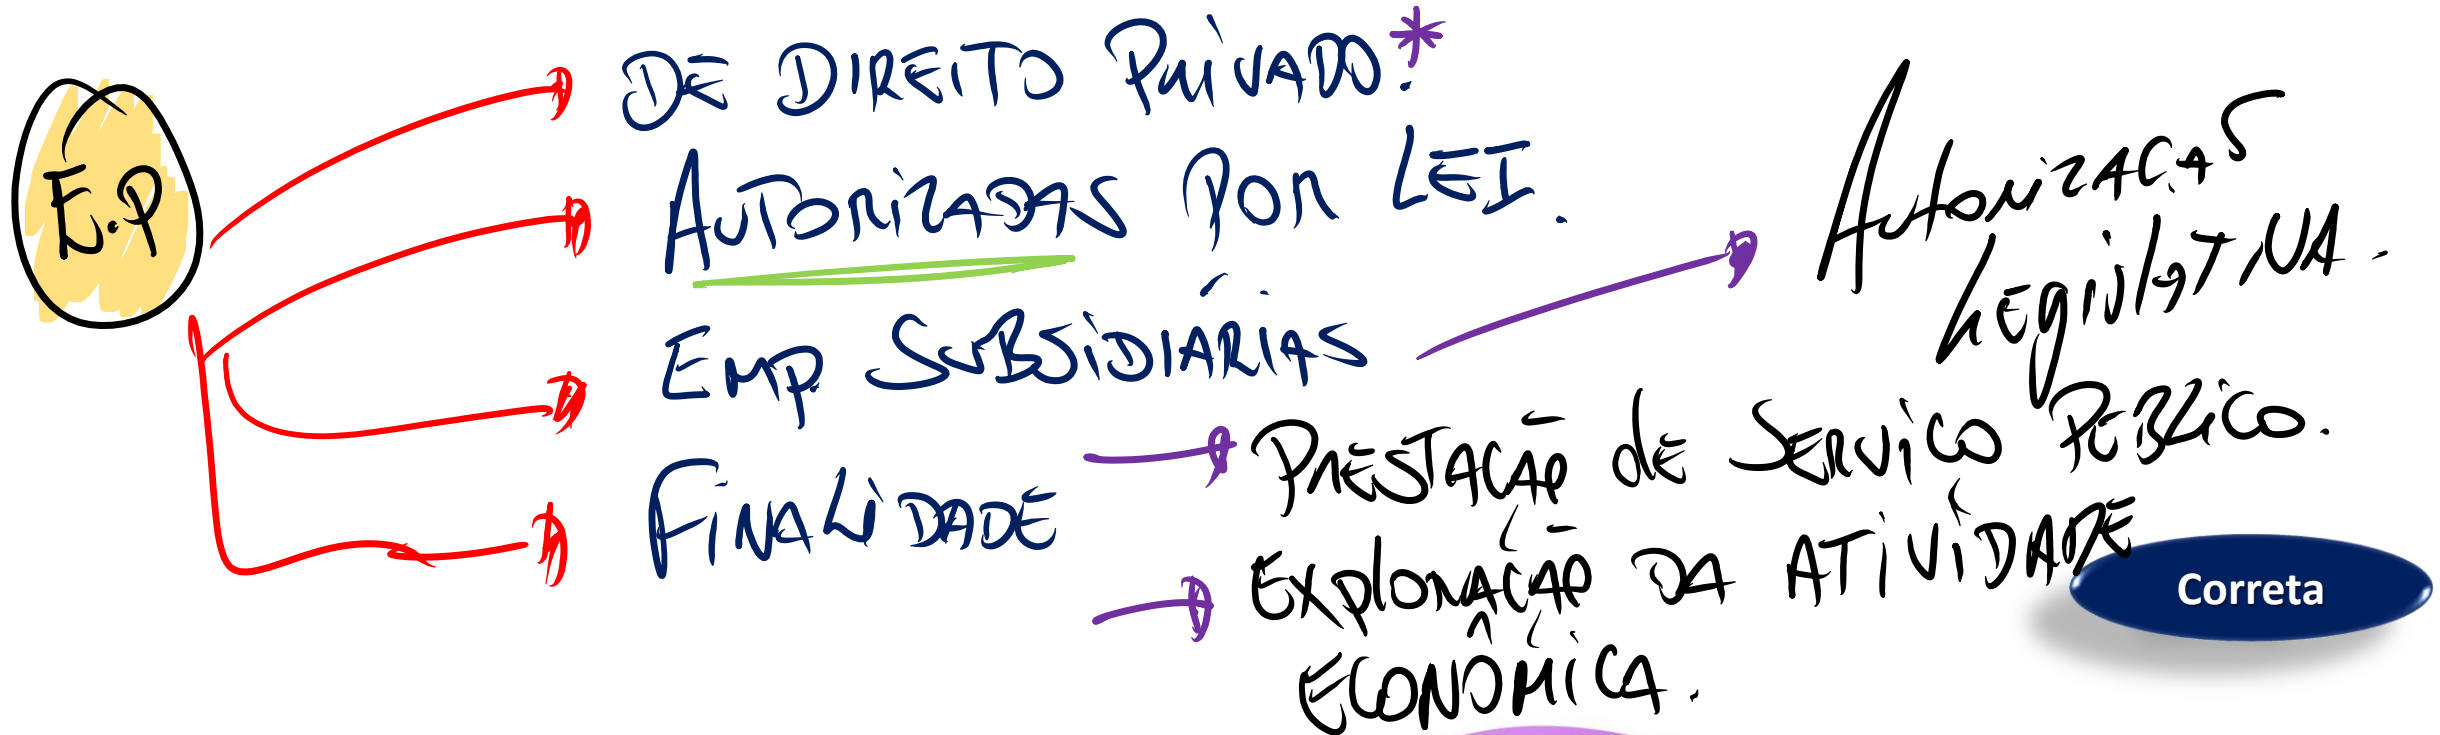 E.P
DE DIREITO PRIVADO.*
AUTORIZADAS POR LEI.
EMP SUBSIDIÁRIAS
AUTORIZAÇÃO
LEGISLATIVA.
FINALIDADE
PRESTAÇÃO de SERVIÇO PÚBLICO.
EXPLORAÇÃO DA ATIVIDADE
ECONÔMICA.
Correta